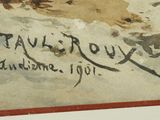 PAUL-ROUX
Audierne. 1901.